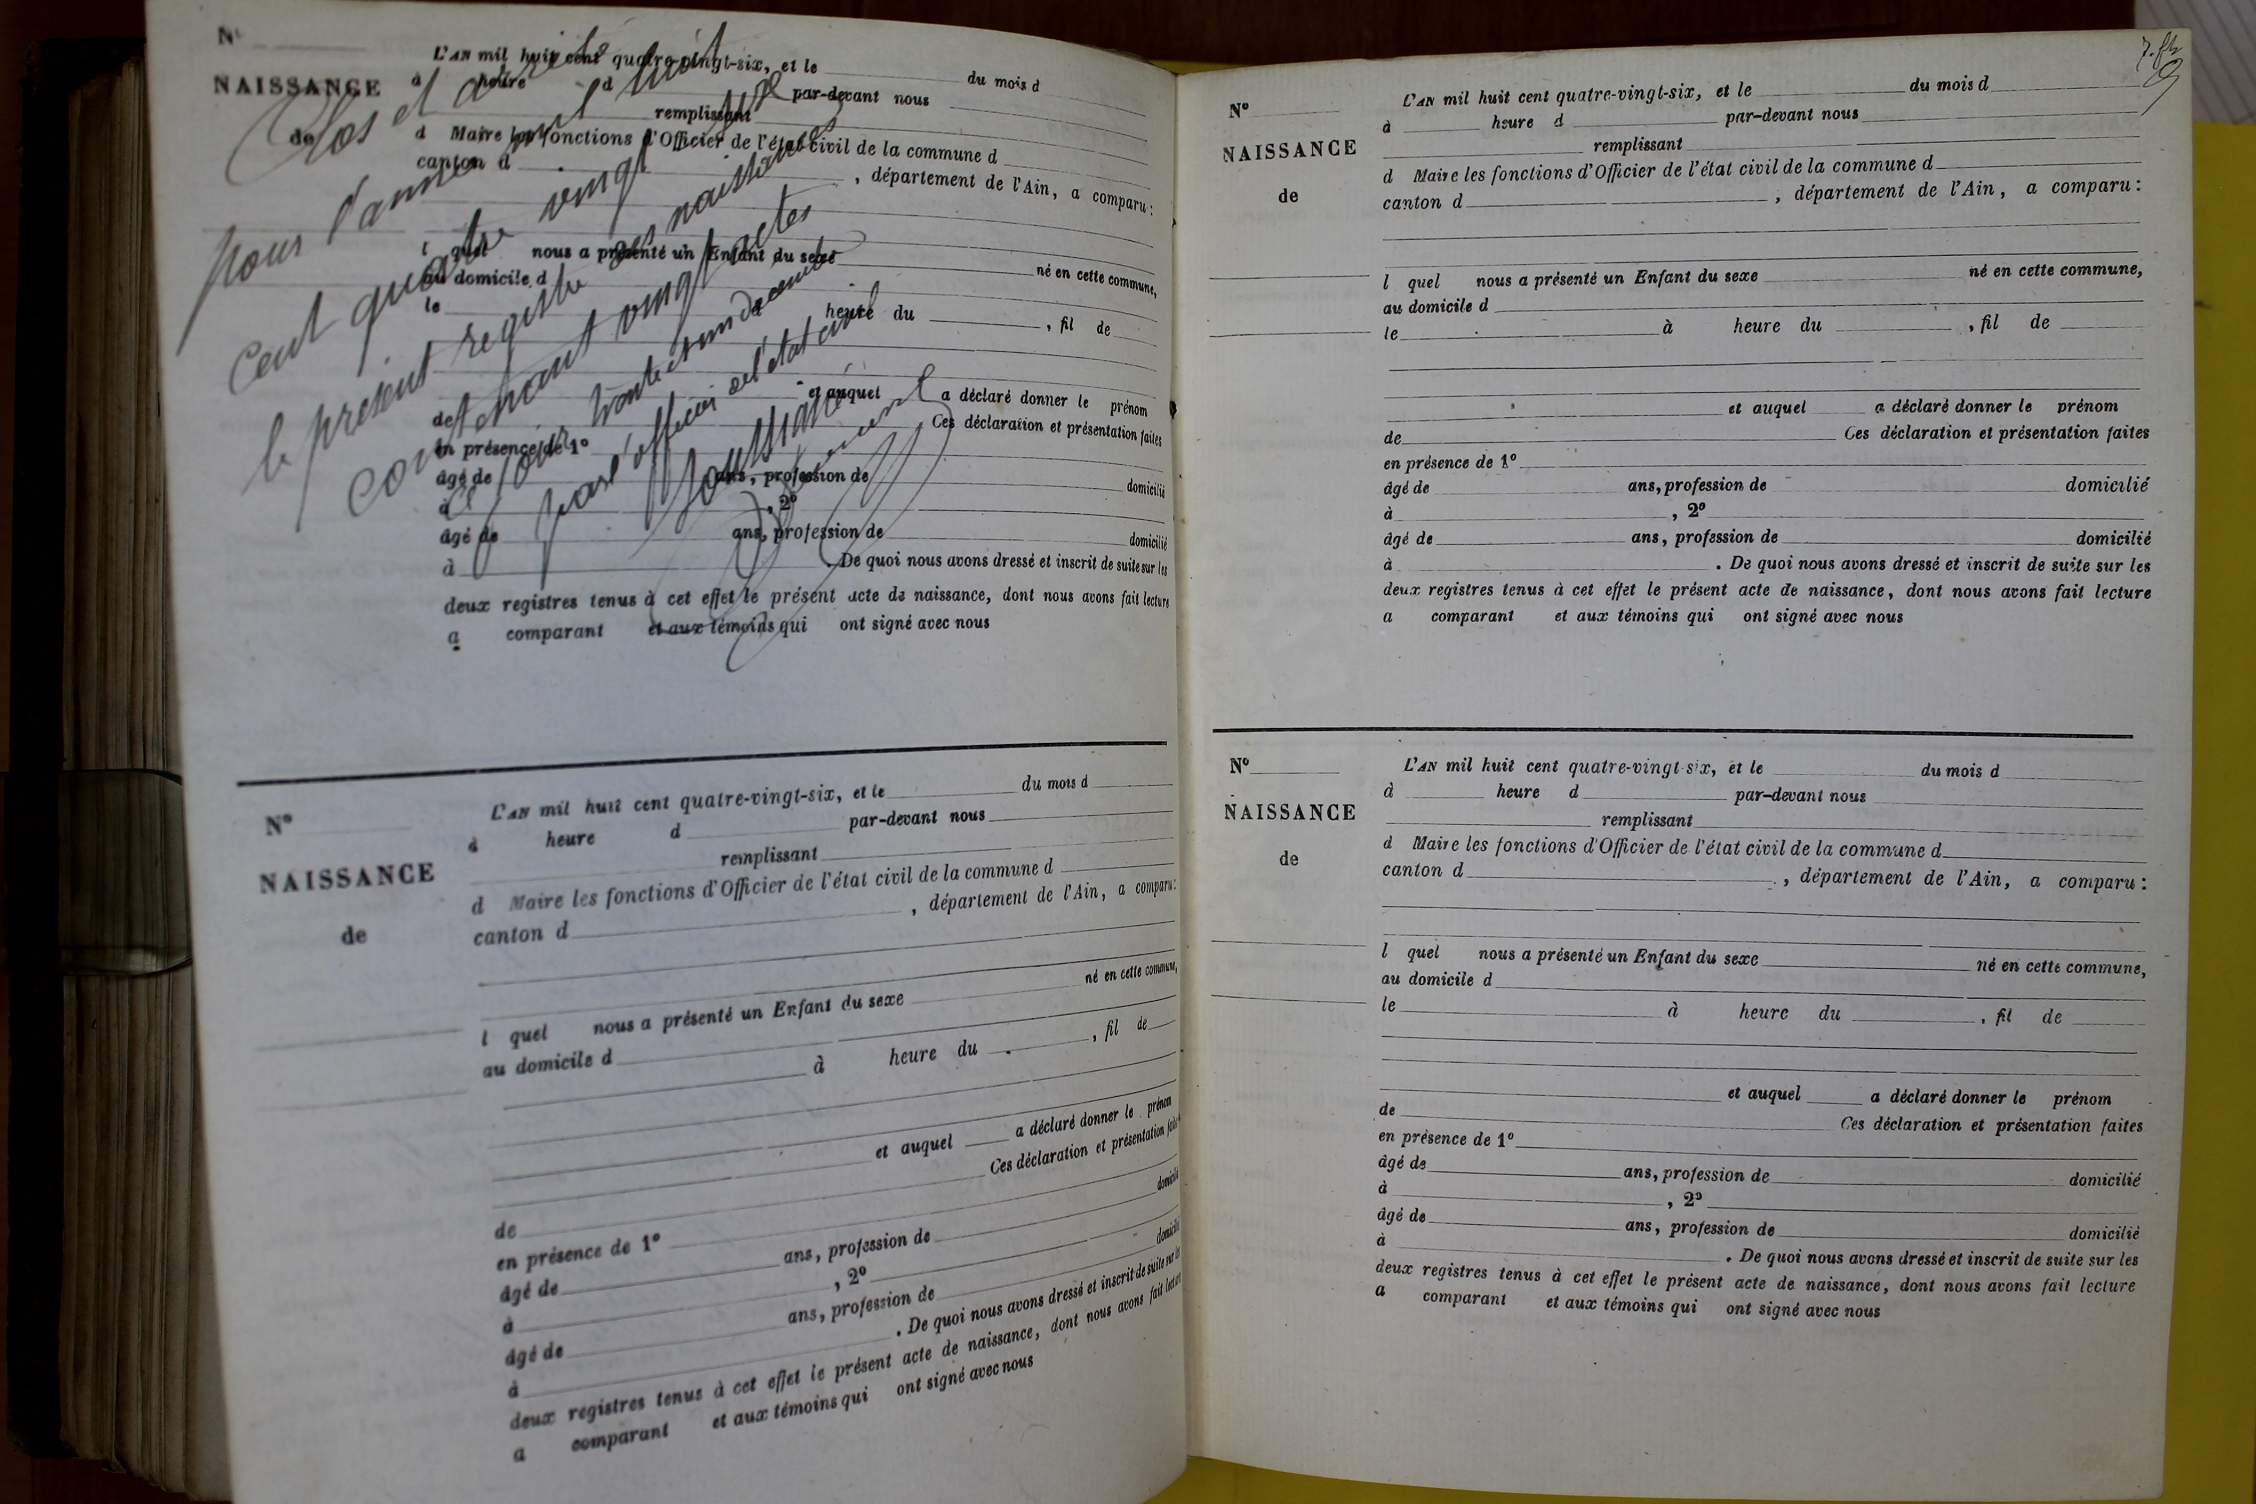 N°
NAISSANCE
de
L'AN mil huit cent quatre-vingt-six, et le du mois d
à heure d par-devant nous
remplissant
d Maire les fonctions d'Officier de l'état civil de la commune d
canton d , département de l'Ain, a comparu :
l quel nous a présenté un Enfant du sexe né en cette commune,
au domicile d
le heure du , fil de
et auquel a déclaré donner le prénom
de Ces déclaration et présentation faites
en présence de 1°
âgé de ans, profession de domicilié
à , 2°
âgé de ans, profession de domicilié
à . De quoi nous avons dressé et inscrit de suite sur les
deux registres tenus à cet effet le présent acte de naissance, dont nous avons fait lecture
a comparant et aux témoins qui ont signé avec nous
Clos et
pour l'année mil huit
cent quatre vingt
le présent registre des naissances
contenant vingt actes
ce soir trente et un décembre
par l'officier de l'état civil
N°
NAISSANCE
de
L'AN mil huit cent quatre-vingt-six, et le du mois d
à heure d par-devant nous
remplissant
d Maire les fonctions d'Officier de l'état civil de la commune d
canton d , département de l'Ain, a comparu :
l quel nous a présenté un Enfant du sexe né en cette commune,
au domicile d
à heure du , fil de
et auquel a déclaré donner le prénom
de Ces déclaration et présentation faites
en présence de 1°
âgé de ans, profession de domicilié
à , 2°
âgé de ans, profession de domicilié
à . De quoi nous avons dressé et inscrit de suite sur les
deux registres tenus à cet effet le présent acte de naissance, dont nous avons fait lecture
a comparant et aux témoins qui ont signé avec nous
N°
NAISSANCE
de
L'AN mil huit cent quatre-vingt-six, et le du mois d
à heure d par-devant nous
remplissant
d Maire les fonctions d'Officier de l'état civil de la commune d
canton d , département de l'Ain, a comparu :
l quel nous a présenté un Enfant du sexe né en cette commune,
au domicile d
le à heure du , fil de
et auquel a déclaré donner le prénom
de Ces déclaration et présentation faites
en présence de 1°
âgé de ans, profession de domicilié
à , 2°
âgé de ans, profession de domicilié
à . De quoi nous avons dressé et inscrit de suite sur les
deux registres tenus à cet effet le présent acte de naissance, dont nous avons fait lecture
a comparant et aux témoins qui ont signé avec nous
N°
NAISSANCE
de
L'AN mil huit cent quatre-vingt-six, et le du mois d
à heure d par-devant nous
remplissant
d Maire les fonctions d'Officier de l'état civil de la commune d
canton d , département de l'Ain, a comparu :
l quel nous a présenté un Enfant du sexe né en cette commune,
au domicile d
le à heure du , fil de
et auquel a déclaré donner le prénom
de Ces déclaration et présentation faites
en présence de 1°
âgé de ans, profession de domicilié
à , 2°
âgé de ans, profession de domicilié
à . De quoi nous avons dressé et inscrit de suite sur les
deux registres tenus à cet effet le présent acte de naissance, dont nous avons fait lecture
a comparant et aux témoins qui ont signé avec nous